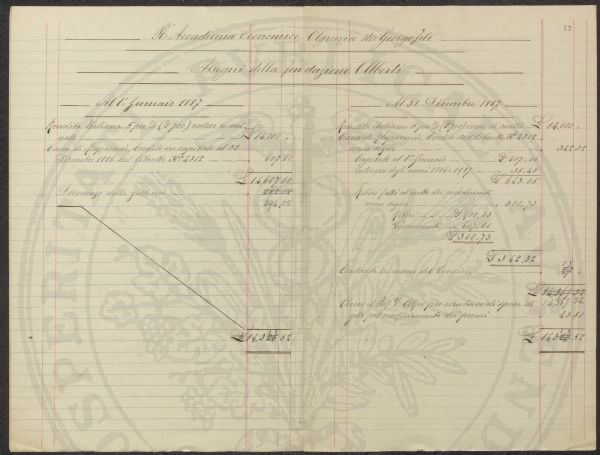 27
Rª Accademia Economico Agraria dei Georgofili
Assegni della fondazione Alberti
Al 1º Gennaio 1887
Rendita Italiana 5 per % (£ 700) valore nomi-
nale £ 14,000 "
Cassa di Risparmio, Credito in capitale al 31
Dicembre 1886 del libretto Nº 4302 607.60
£ 14,607.60
Disavanzo della gestione
294,08
£ 14,3 52
Al 31 Dicembre 1887
Rendita italiana 5 per % (£ 700) come di contro £ 14,000 "
Cassa di Risparmio, Credito sul libretto Nº 4302
come segue 342.32
Capitale al 1º Gennaio £ 607.60
Interessi degli anni 1886 e 1887 " 35.45
£ 643.05
Ritiri fatti al netto dei pagamenti
come segue " 300,73
Ritiri
Versamenti
£ 300,73
£ 342,32
Contante in mano del
£
per pel conferimento dei premi 43 80
£ 14,3 52